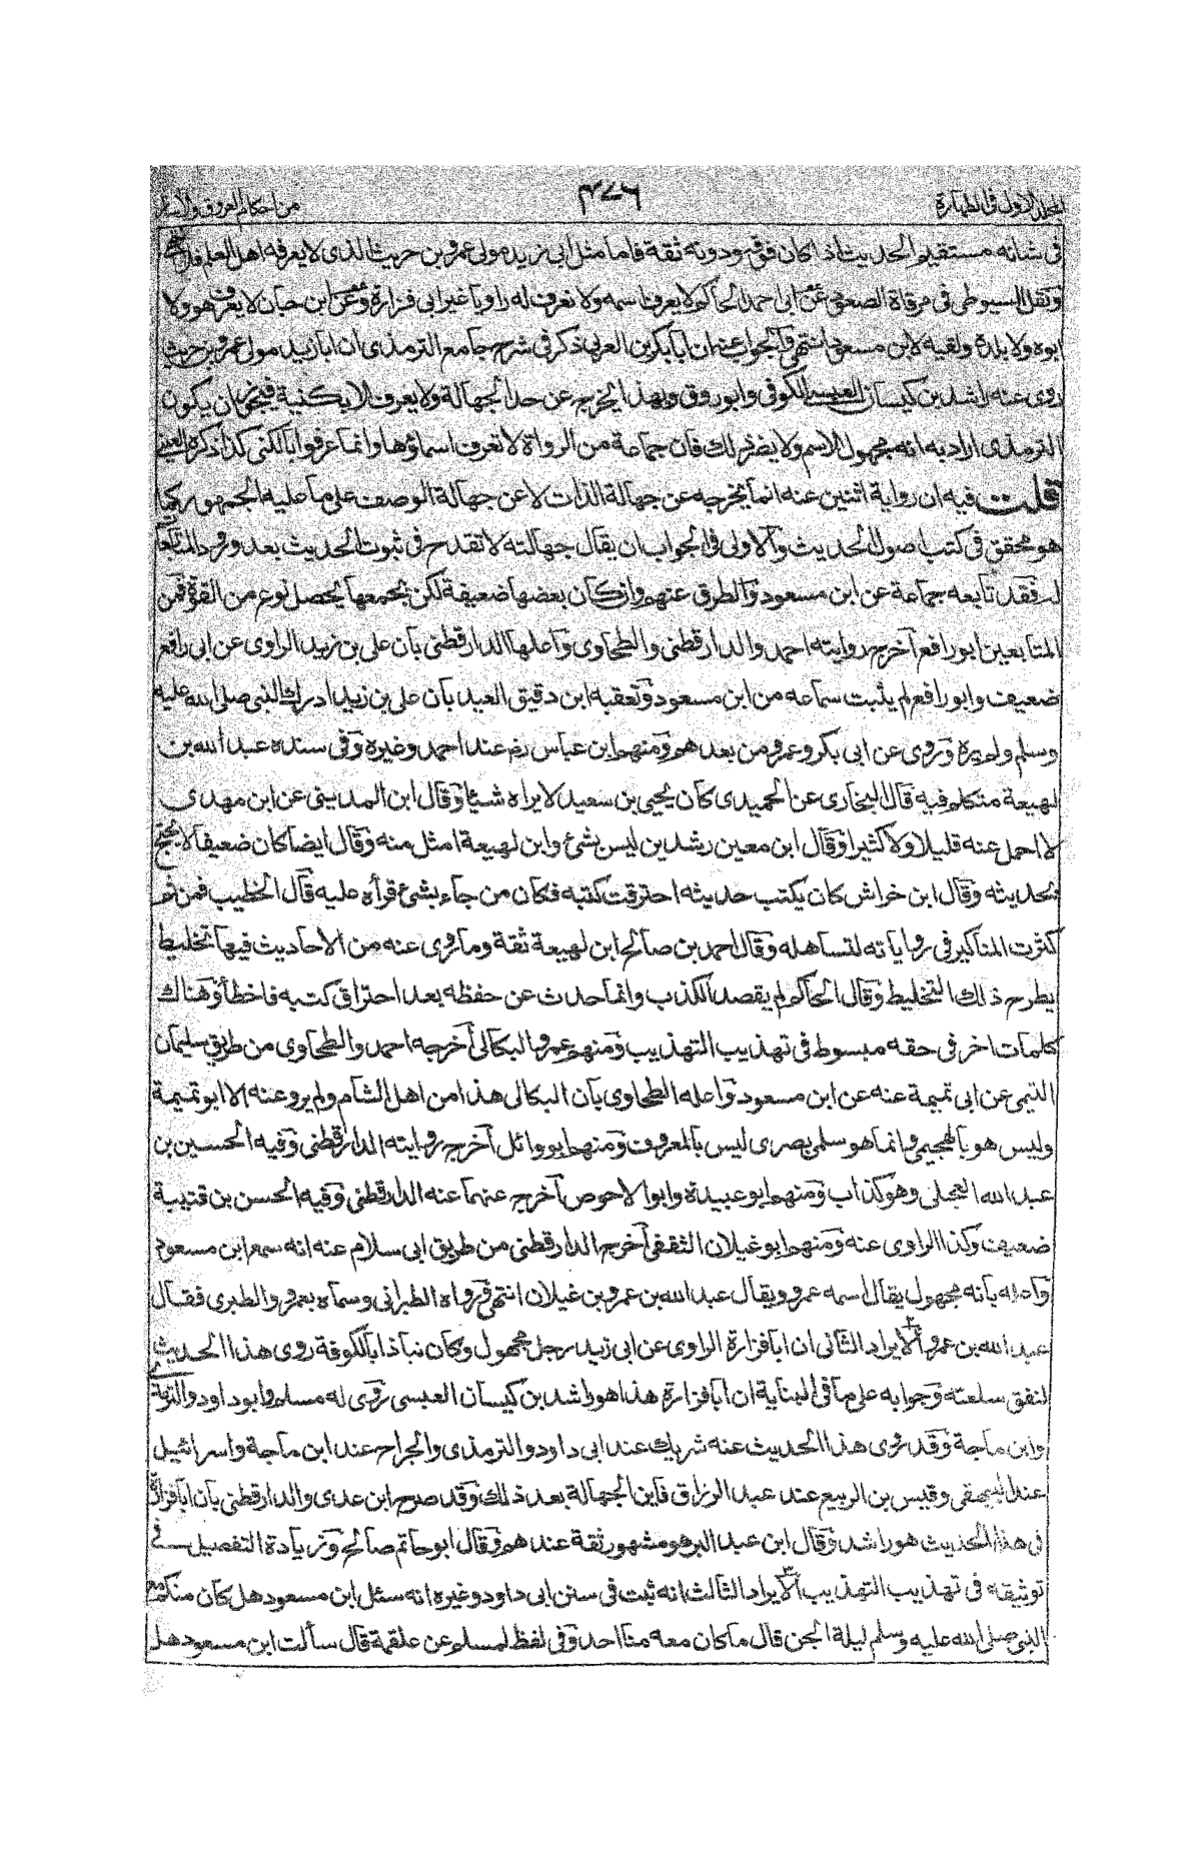 المجلد الاول فى الطهارة
٤٧٦
من احكام العروق والآسار
فى شانه مستقيم الحديث اذا كان فوقه ودونه ثقة فاما مثل ابى زيد مولى عمرو بن حريث الذى لا يعرفه اهل العلم فلا
ونقل السيوطى فى مرقاة الصعود عن ابى احمد الحاكم لا يعرف اسمه ولا نعرف له راويا غير ابى فزارة وعن ابن حبان لا يعرف هو ولا
ابوه ولا بلده ولقيه لابن مسعود انتهى والجواب عنه ان ابا بكر بن العربى ذكر فى شرح جامع الترمذى ان ابا زيد مولى عمرو بن حريث
روى عنه راشد بن كيسان العبسى الكوفى وابو روق وبهذا يخرج عن حد الجهالة ولا يعرف الا بكنيته فيجوز ان يكون
الترمذى اراد به انه مجهول الاسم ولا يضر ذلك فان جماعة من الرواة لا تعرف اسماؤها وانما عرفوا بالكنى كذا ذكره العينى
قلت فيه ان رواية اثنين عنه انما يخرجه عن جهالة الذات لا عن جهالة الوصف على ما عليه الجمهور كما
هو محقق فى كتب اصول الحديث والاولى فى الجواب ان يقال جهالته لا تقدح فى ثبوت الحديث بعد ورود المتابعة
له فقد تابعه جماعة عن ابن مسعود والطرق عنهم وان كان بعضها ضعيفة لكن بجمعها يحصل نوع من القوة فمن
المتابعين ابو رافع اخرج روايته احمد والدارقطنى والطحاوى واعلها الدارقطنى بان على بن زيد الراوى عن ابى رافع
ضعيف وابو رافع لم يثبت سماعه من ابن مسعود وتعقبه ابن دقيق العيد بان على بن زيد ادرك النبى صلى الله عليه
وسلم ولم يره وروى عن ابى بكر وعمر ومن بعدهم ومنهم ابن عباس رض عند احمد وغيره وفى سنده عبد الله بن
لهيعة متكلم فيه قال البخارى عن الحميدى كان يحيى بن سعيد لا يراه شيئا وقال ابن المدينى عن ابن مهدى
لا احمل عنه قليلا ولا كثيرا وقال ابن معين رشدين ليس بشئ وابن لهيعة امثل منه وقال ايضا كان ضعيفا لا يحتج
بحديثه وقال ابن خراش كان يكتب حديثه احترقت كتبه فكان من جاء بشئ قرأه عليه قال الخطيب فمن ثم
كثرت المناكير فى رواياته لتساهله وقال احمد بن صالح ابن لهيعة ثقة وما روى عنه من الاحاديث فيها تخليط
يطرح ذلك التخليط وقال الحاكم لم يقصد الكذب وانما حدث عن حفظه بعد احتراق كتبه فاخطأ وهناك
كلمات اخر فى حقه مبسوط فى تهذيب التهذيب ومنهم عمرو البكالى اخرجه احمد والطحاوى من طريق سليمان
التيمى عن ابى تميمة عنه عن ابن مسعود واعله الطحاوى بان البكالى هذا من اهل الشام ولم يرو عنه الا ابو تميمة
وليس هو بالهجيمى وانما هو سلمى بصرى ليس بالمعروف ومنهم ابو وائل اخرج روايته الدارقطنى وفيه الحسين بن
عبد الله العجلى وهو كذاب ومنهم ابو عبيدة وابو الاحوص اخرج عنهما عنه الدارقطنى وفيه الحسن بن قتيبة
ضعيف وكذا الراوى عنه ومنهم ابو غيلان الثقفى اخرج الدارقطنى من طريق ابى سلام عنه انه سمع ابن مسعود
واعله بانه مجهول يقال اسمه عمرو ويقال عبد الله بن عمرو بن غيلان انتهى ورواه الطبرانى وسماه بعمرو والطبرى فقال
عبد الله بن عمرو الايراد الثانى ان ابا فزارة الراوى عن ابى زيد رجل مجهول وكان نباذا بالكوفة روى هذا الحديث
لنفق سلعته وجوابه على ما فى البناية ان ابا فزارة هذا هو راشد بن كيسان العبسى روى له مسلم وابو داود والترمذى
وابن ماجة وقد روى هذا الحديث عنه شريك عند ابى داود والترمذى والجراح عند ابن ماجة واسرائيل
عند البيهقى وقيس بن الربيع عند عبد الرزاق فاين الجهالة بعد ذلك وقد صرح ابن عدى والدارقطنى بان ابا فزارة
فى هذا الحديث هو راشد وقال ابن عبد البر هو مشهور ثقة عندهم وقال ابو حاتم صالح وزيادة التفصيل فى
توثيقه فى تهذيب التهذيب الايراد الثالث انه ثبت فى سنن ابى داود وغيره انه سئل ابن مسعود هل كان منكم مع
النبى صلى الله عليه وسلم ليلة الجن قال ما كان معه منا احد وفى لفظ لمسلم عن علقمة قال سألت ابن مسعود هل